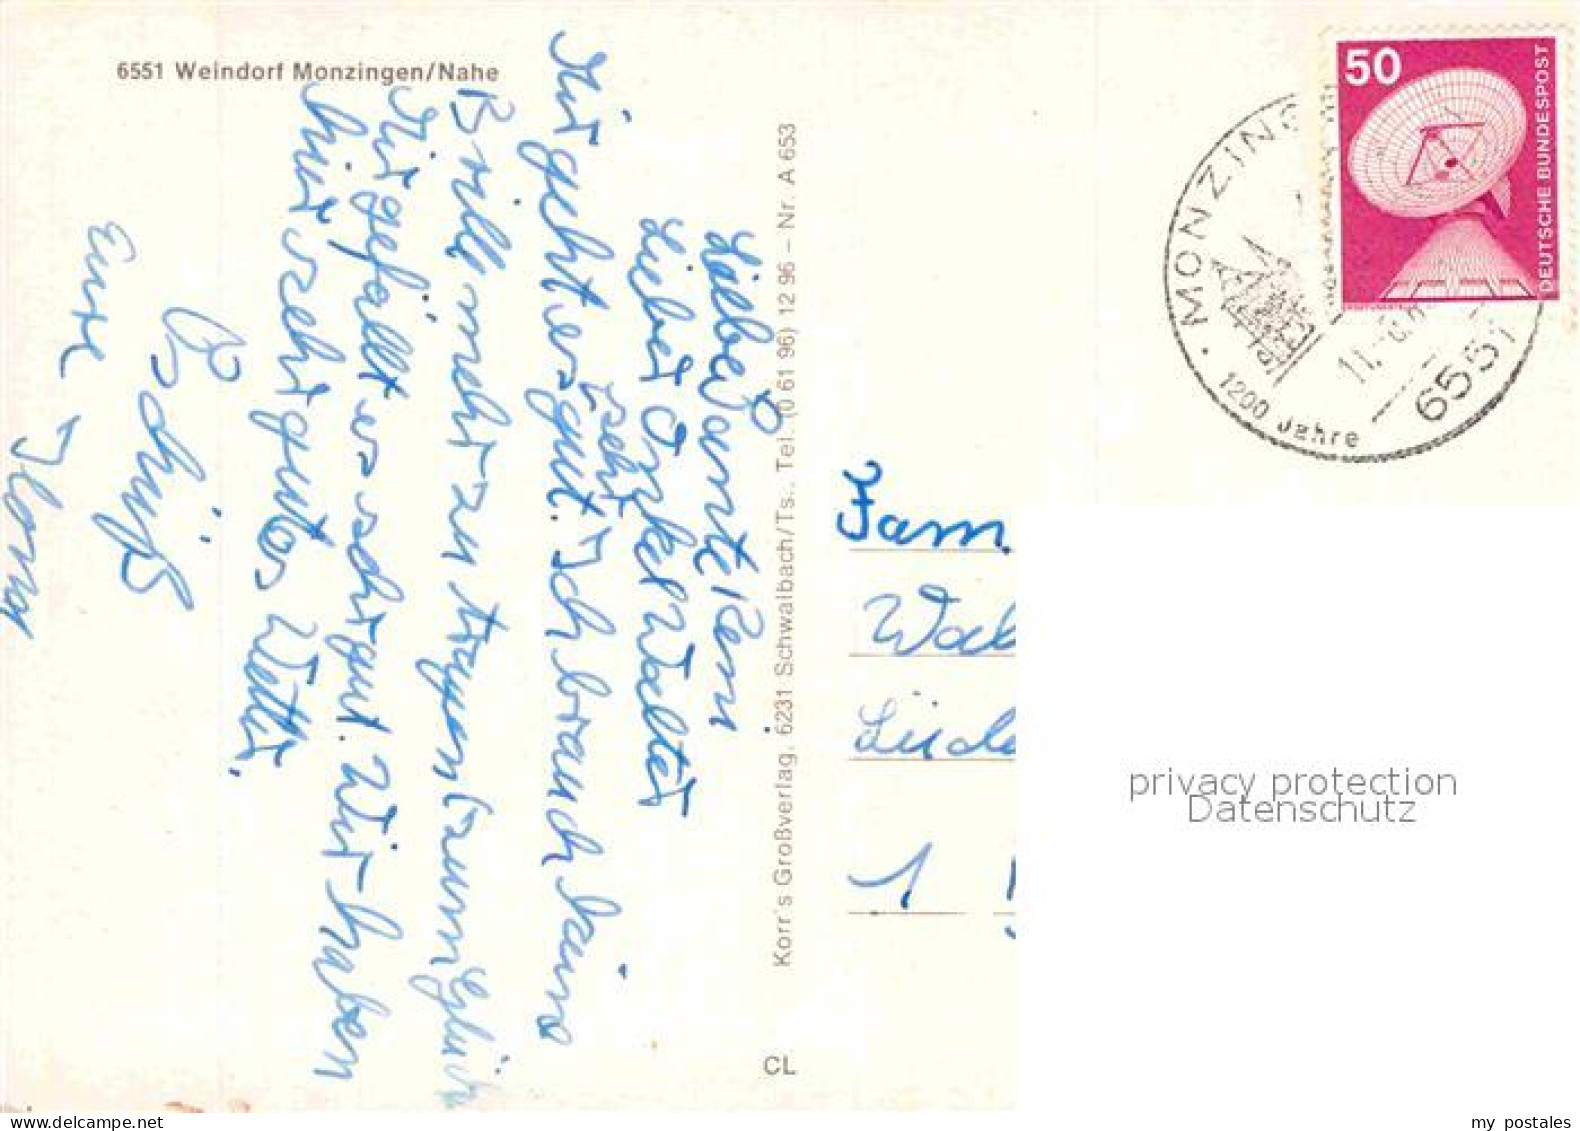 6551 Weindorf Monzingen/Nahe
Liebe Tante Remi
Lieber Onkel Walter
Mir geht es sehr gut. Ich brauch keine
Brille mehr zu tragen (zum Glück
Mir gefällt es sehr gut. Wir haben
hier sehr gutes Wetter.
Tschüß
Eure Ilona
Korr's Großverlag, 6231 Schwalbach/Ts., Tel. (0 61 96) 12 96 – Nr. A 653
CL
50
DEUTSCHE BUNDESPOST
MONZING
1200 Jahre
6551
Fam.
1
privacy protection
Datenschutz
my postales